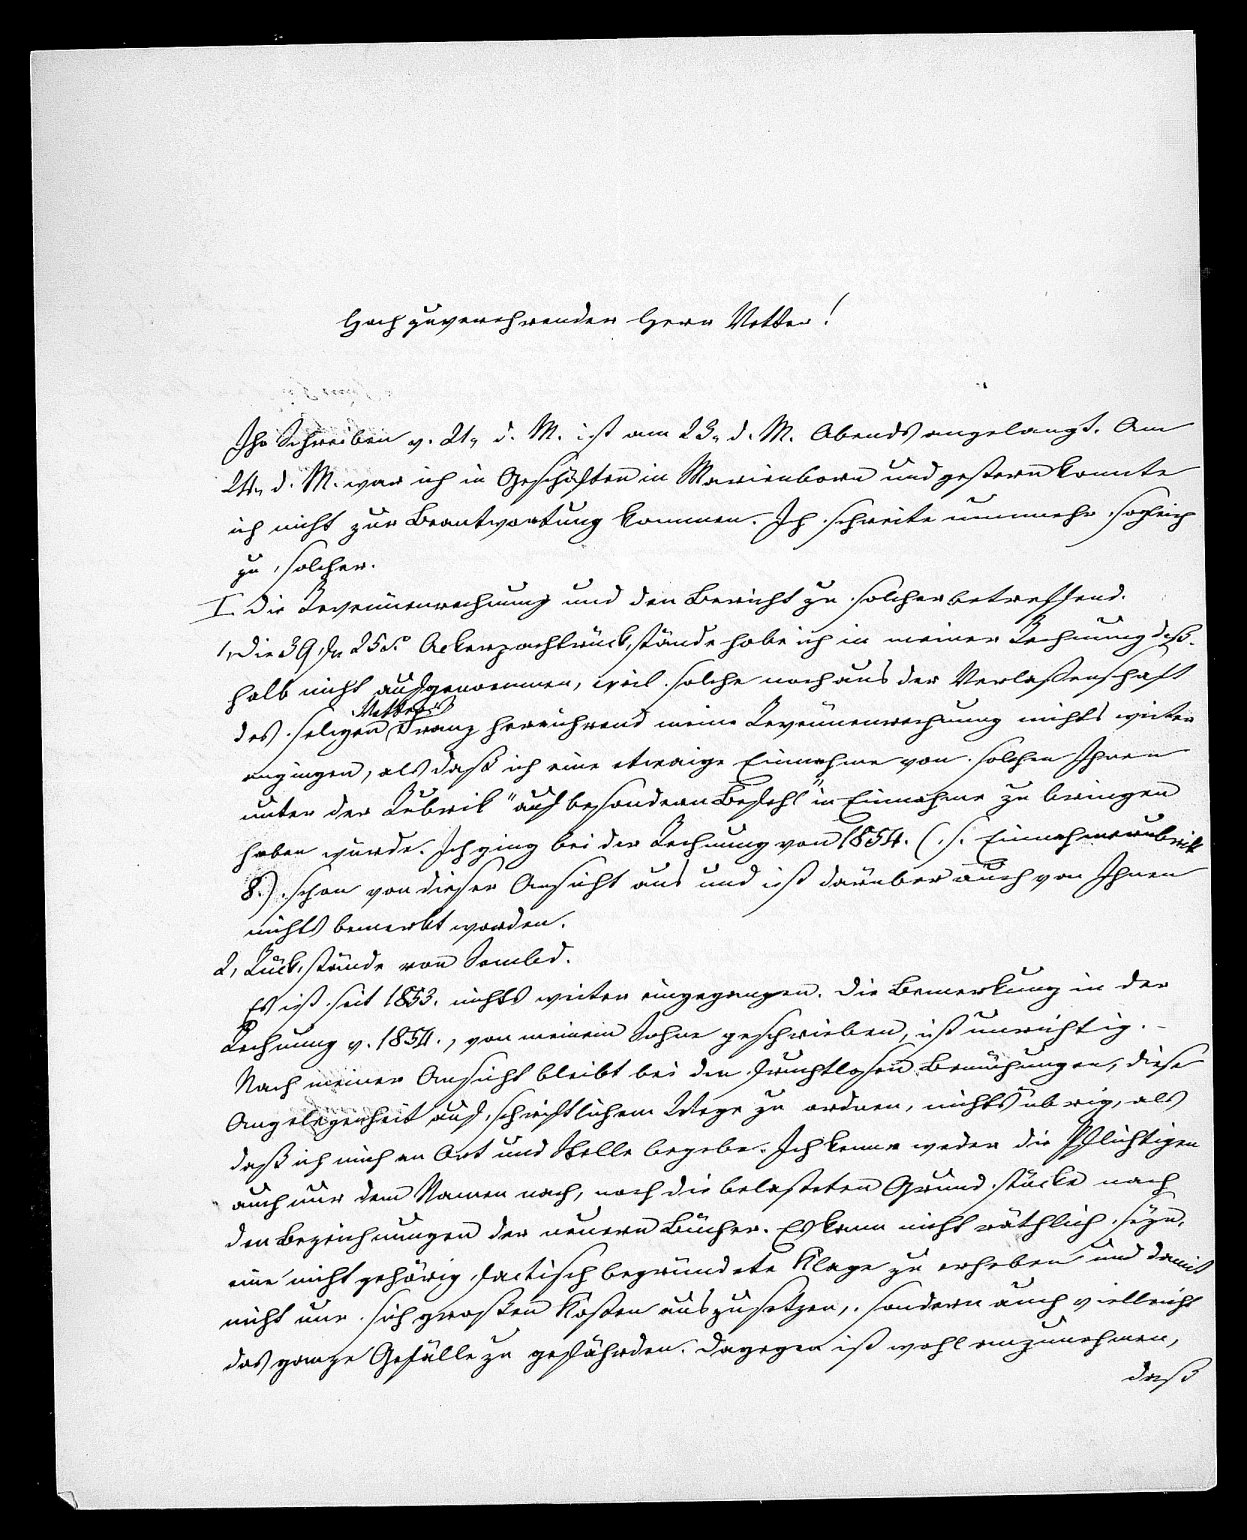 Hochzuverehrender Herr Vetter!
Ihr Schreiben v. 21. d. M. ist am 23. d. M. Abends angelangt. Am
24. d. M. war ich in Geschäften in Marienborn und gestern konnte
ich nicht zur Beantwortung kommen. Ich schreite nunmehr sogleich
zu solcher.
I. Die Revenüenrechnung und den Bericht zu solcher betreffend.
1, Die 39 fr. 25 Ackerpachtrückstände habe ich in meiner Rechnung deß-
halb nicht aufgenommen, weil solche noch aus der Verlaßenschaft
des seligen Vetters Franz herrührend meine Revenüenrechnung nichts weiter
angingen, als daß ich eine etwaige Einnahme von solchen Ihnen
unter der Rubrik "auf besondern Befehl" in Einnahme zu bringen
haben würde. Ich ging bei der Rechnung von 1854. (s. Einnahmerubrik
8.) schon von dieser Ansicht aus und ist darüber auch von Ihnen
nichts bemerkt worden.
2, Rückstände von Sembd.
Es ist seit 1853. nichts weiter eingegangen. Die Bemerkung in der
Rechnung v. 1854., von meinem Sohne geschrieben, ist unrichtig. -
Nach meiner Ansicht bleibt bei den fruchtlosen Bemühungen, diese
Angelegenheit auf schriftlichem Wege zu ordnen, nichts übrig, als
daß ich mich an Ort und Stelle begebe. Ich kenne weder die Pflichtigen
auch nur dem Namen nach, noch die belasteten Grundstücke nach
den Bezeichnungen der neuern Bücher. Es kann nicht räthlich seyn,
eine nicht gehörig factisch begründete Klage zu erheben und damit
nicht nur sich großen Kosten auszusetzen, sondern auch vielleicht
das ganze Gefälle zu gefährden. Dagegen ist wohl anzunehmen,
daß